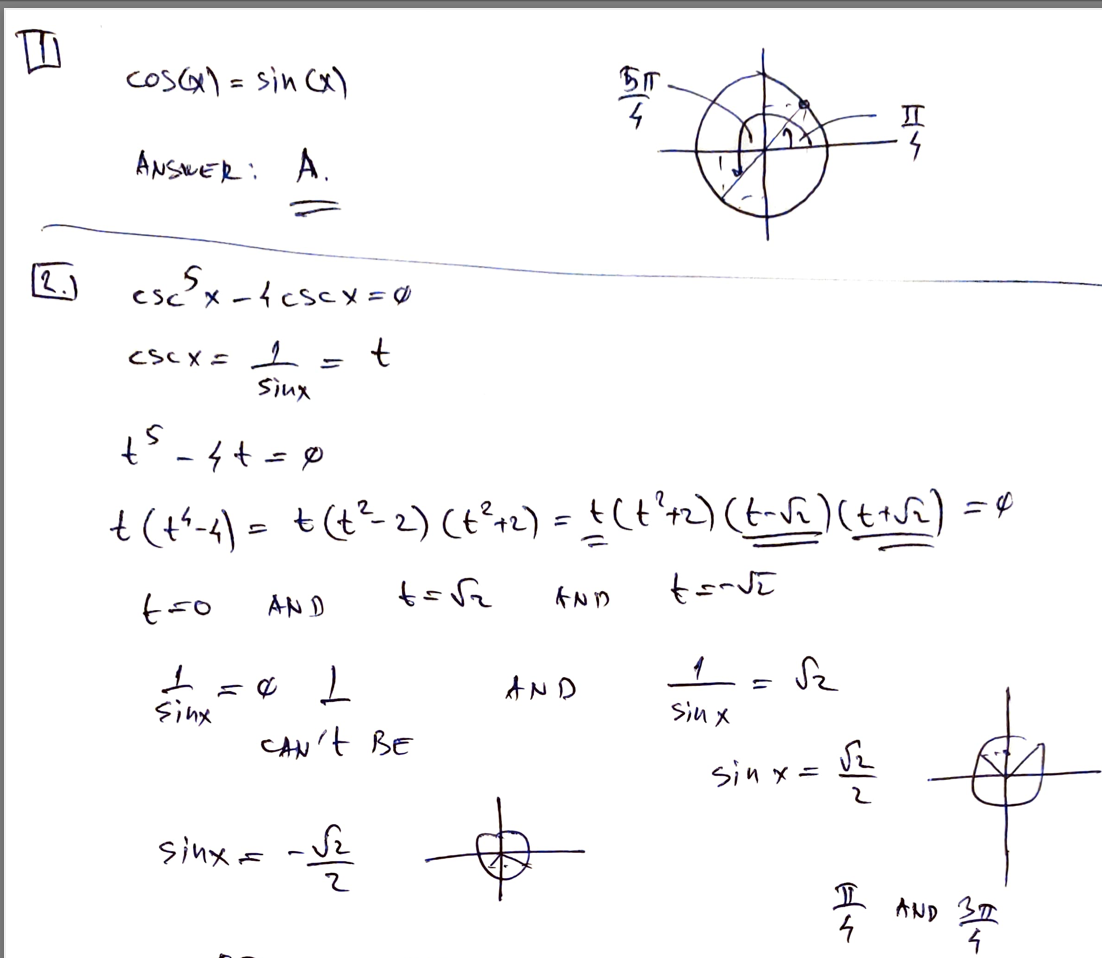 1
cos(x) = sin(x)
5π/4
π/4
ANSWER: A.
2.)
csc⁵x - 4cscx = 0
cscx = 1/sinx = t
t⁵ - 4t = 0
t(t⁴-4) = t(t²-2)(t²+2) = t(t²+2)(t-√2)(t+√2) = 0
t=0 AND t=√2 AND t=-√2
1/sinx = 0 ⊥ AND 1/sinx = √2
CAN't BE
sinx = √2/2
sinx = -√2/2
π/4 AND 3π/4